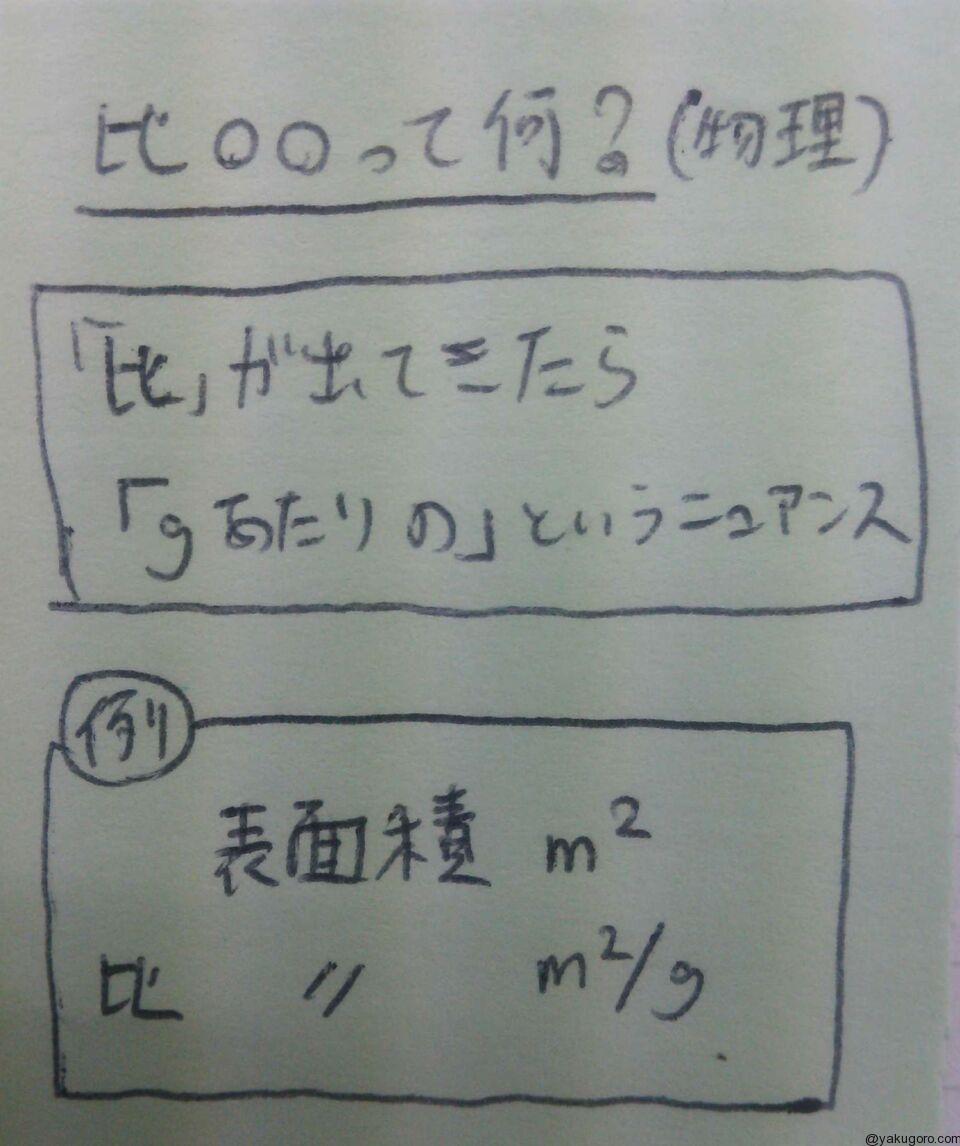 比○○って何?(物理)
「比」が出てきたら
「gあたりの」というニュアンス
例
表面積 m²
比 〃 m²/g
@yakugoro.com